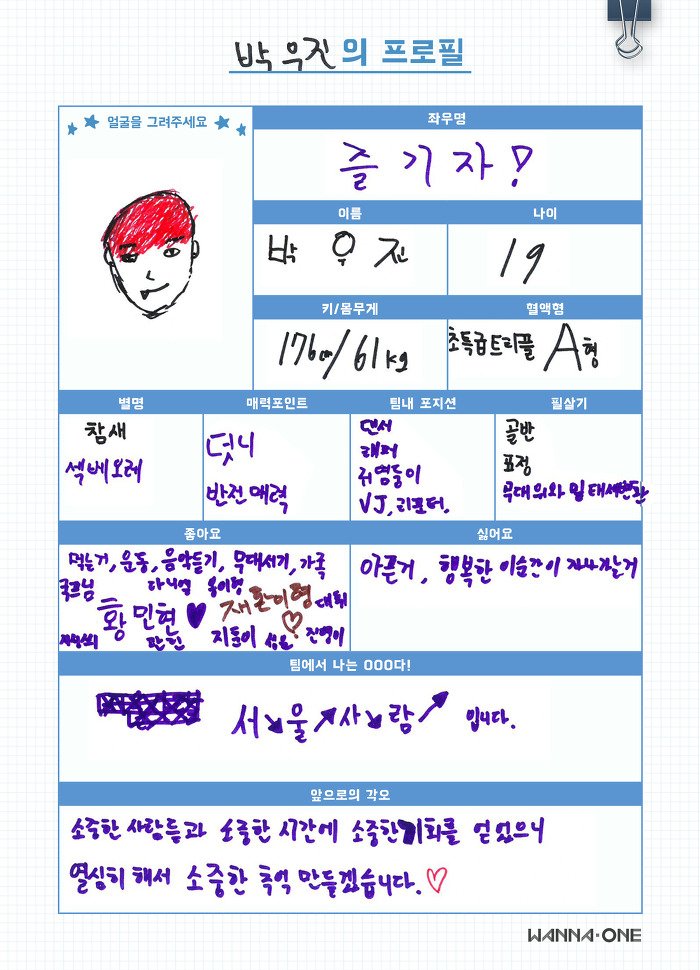 박우진의 프로필
얼굴을 그려주세요
좌우명
즐기자!
이름
나이
박우진
19
키/몸무게
혈액형
176cm/61kg
초특급트리플 A형
별명
매력포인트
팀내 포지션
필살기
참새
섹베오레
덧니
반전매력
댄서
래퍼
귀염둥이
VJ, 리포터.
골반
표정
무대 위와 밑 태세변환
좋아요
싫어요
먹는거, 운동, 음악듣기, 무대서기, 가족
국프님 다니엘 옹이형
황민현 재환이형 대휘
관린 지훈이 성운 진영이
아픈거, 행복한 이순간이 지나가는거
팀에서 나는 OOO다!
서↘울↗사↘람↗ 입니다.
앞으로의 각오
소중한 사람들과 소중한 시간에 소중한 기회를 얻었으니
열심히 해서 소중한 추억 만들겠습니다.♡
WANNA·ONE